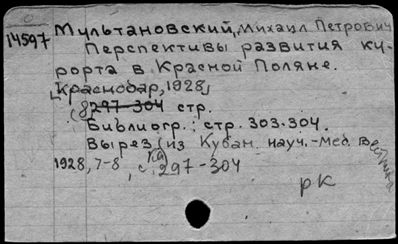 14597 Мультановский, Михаил Петрович
Перспективы развития ку-
рорта в Красной Поляне.
[Краснодар, 1928]
297-304 стр.
Библиогр.: стр. 303-304.
Вырез из Кубан. науч.-мед. Вестника
1928, 7-8, с. 297-304
рк